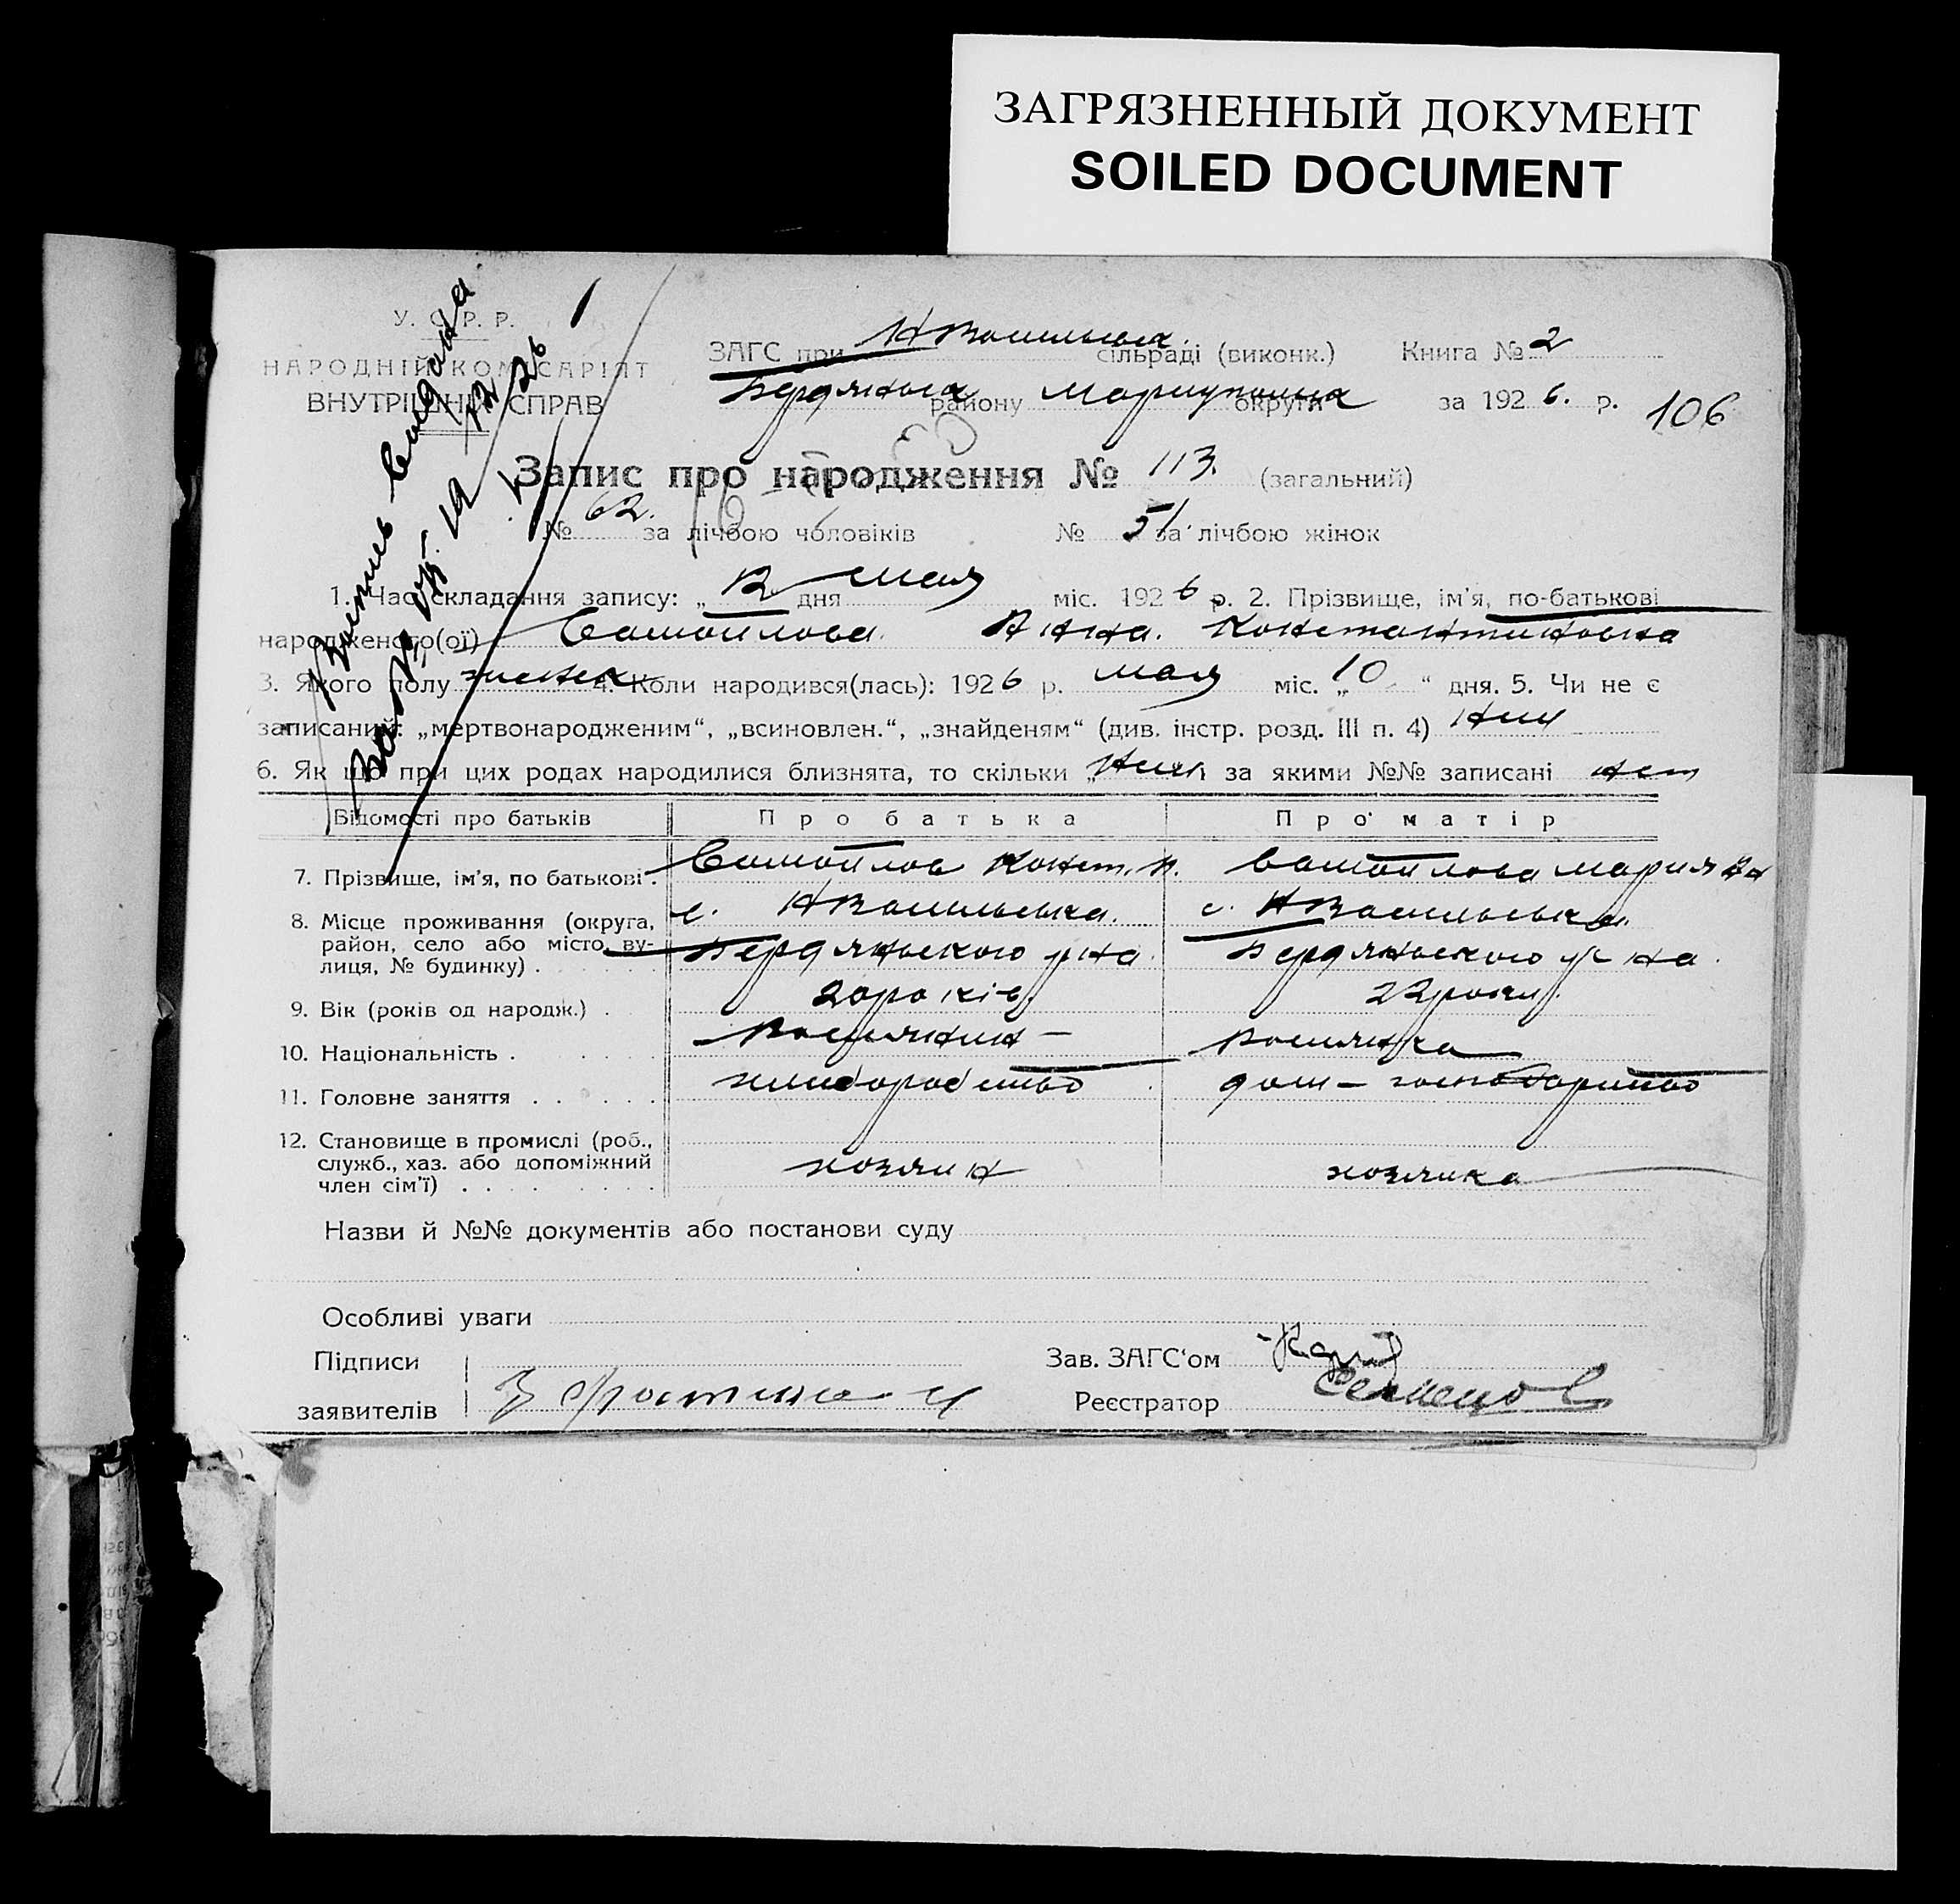 ЗАГРЯЗНЕННЫЙ ДОКУМЕНТ
SOILED DOCUMENT
У. С. Р. Р.
НАРОДНІЙ КОМІСАРІЯТ
ВНУТРІШНІХ СПРАВ
ЗАГС при НВасильська сільраді (виконк.) Книга № 2
Бердянська району Маріупільська округи за 1926. р. 106
Запис про народження № 113. (загальний)
№ 62. за лічбою чоловіків № 51 за лічбою жінок
1. Час складання запису: „12 дня мая міс. 1926 р. 2. Прізвище, ім'я, по-батькові
народженого(ої) Самойлова Анна Константиновна
3. Якого полу женск 4. Коли народився(лась): 1926 р. мая міс. „10 “ дня. 5. Чи не є
записаний: „мертвонародженим“, „всиновлен.“, „знайденям“ (див. інстр. розд. III п. 4) Ни
6. Як що при цих родах народилися близнята, то скільки за якими №№ записані нет
Відомості про батьків Про батька Про матір
7. Прізвище, ім'я, по батькові. Самойлов Конст. Самойлова Мария
8. Місце проживання (округа, с. НВасильська. с. НВасильська.
район, село або місто, ву- Бердянського р-на. Бердянського р-на.
лиця, № будинку) .
9. Вік (років од народж.) . 20 років. 22 роки.
10. Національність . Росиянин – Росиянка
11. Головне заняття . хлиборобство дом – господарство
12. Становище в промислі (роб.,
служб., хаз. або допоміжний хозяин хозяика
член сім'ї) .
Назви й №№ документів або постанови суду
Особливі уваги
Підписи Зав. ЗАГС'ом
заявителів Реєстратор Семенцов